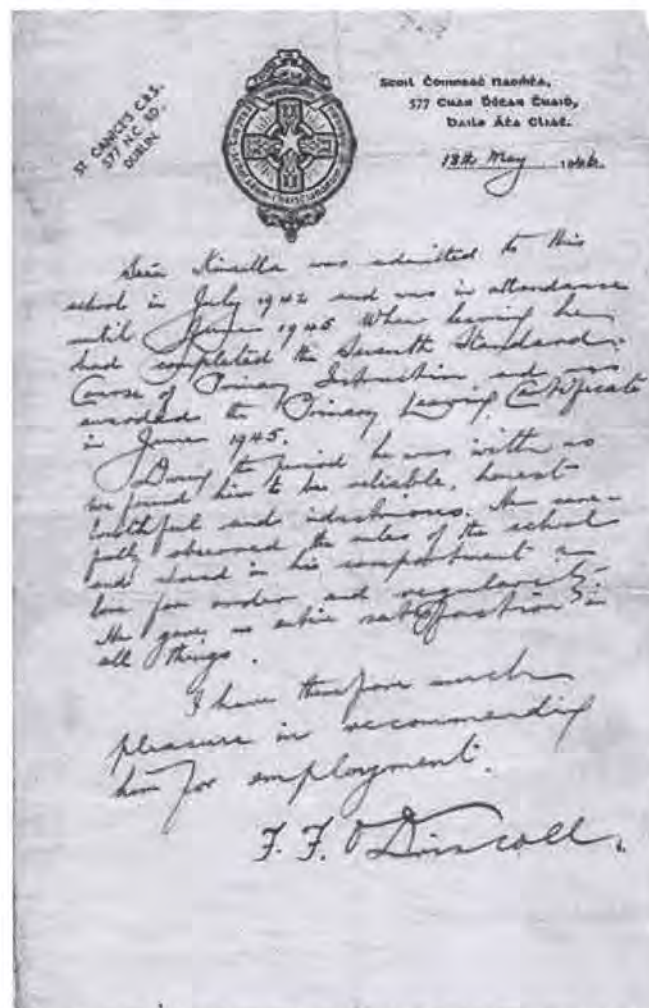 ST. CANICE'S C.B.S.
577 N.C. RD.
DUBLIN
Scoil Ċoinneaċ Naoṁṫa,
577 Cuar Ḃóṫar Ṫuaiḋ,
Baile Áṫa Cliaṫ.
18th May 1946.
Kinsella was admitted to this
school in July 1942 and was in attendance
until June 1945. When leaving he
had completed the Seventh Standard
Course of Primary Instruction and was
awarded the Primary Leaving Certificate
in June 1945.
During the period he was with us
we found him to be reliable, honest
truthful and industrious. He care-
fully observed the rules of the school
and showed in his comportment a
love for order and regularity.
He gave us entire satisfaction in
all things.
I have therefore much
pleasure in recommending
him for employment.
F. F. O'Driscoll.